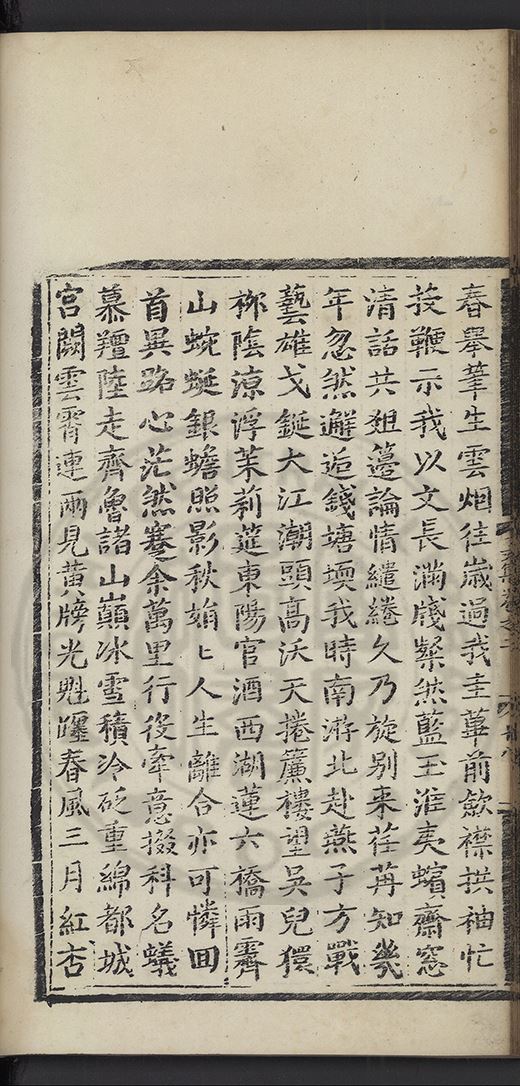 春舉筆生雲烟往歳過我圭蓽前歛襟拱袖忙
投鞭示我以文長滿牋粲然藍玉淮夷蠙齋窓
清話共爼籩論情繾綣久乃旋别来荏苒知幾
年忽然邂逅錢塘堧我時南游北赴燕子方戰
藝雄戈鋋大江潮頭高沃天捲簾樓望吳兒獧
栁陰凉浮茉莉筵東陽官酒西湖蓮六橋雨霽
山蜿蜒銀蟾照影秋娟ヒ人生離合亦可憐回
首異路心茫然蹇余萬里行役牽意掇科名蟻
慕羶陸走齊魯諸山巔冰雪積冷砭重綿都城
宮闕雲霄連兩見黄牓光魁躔春風三月紅杏